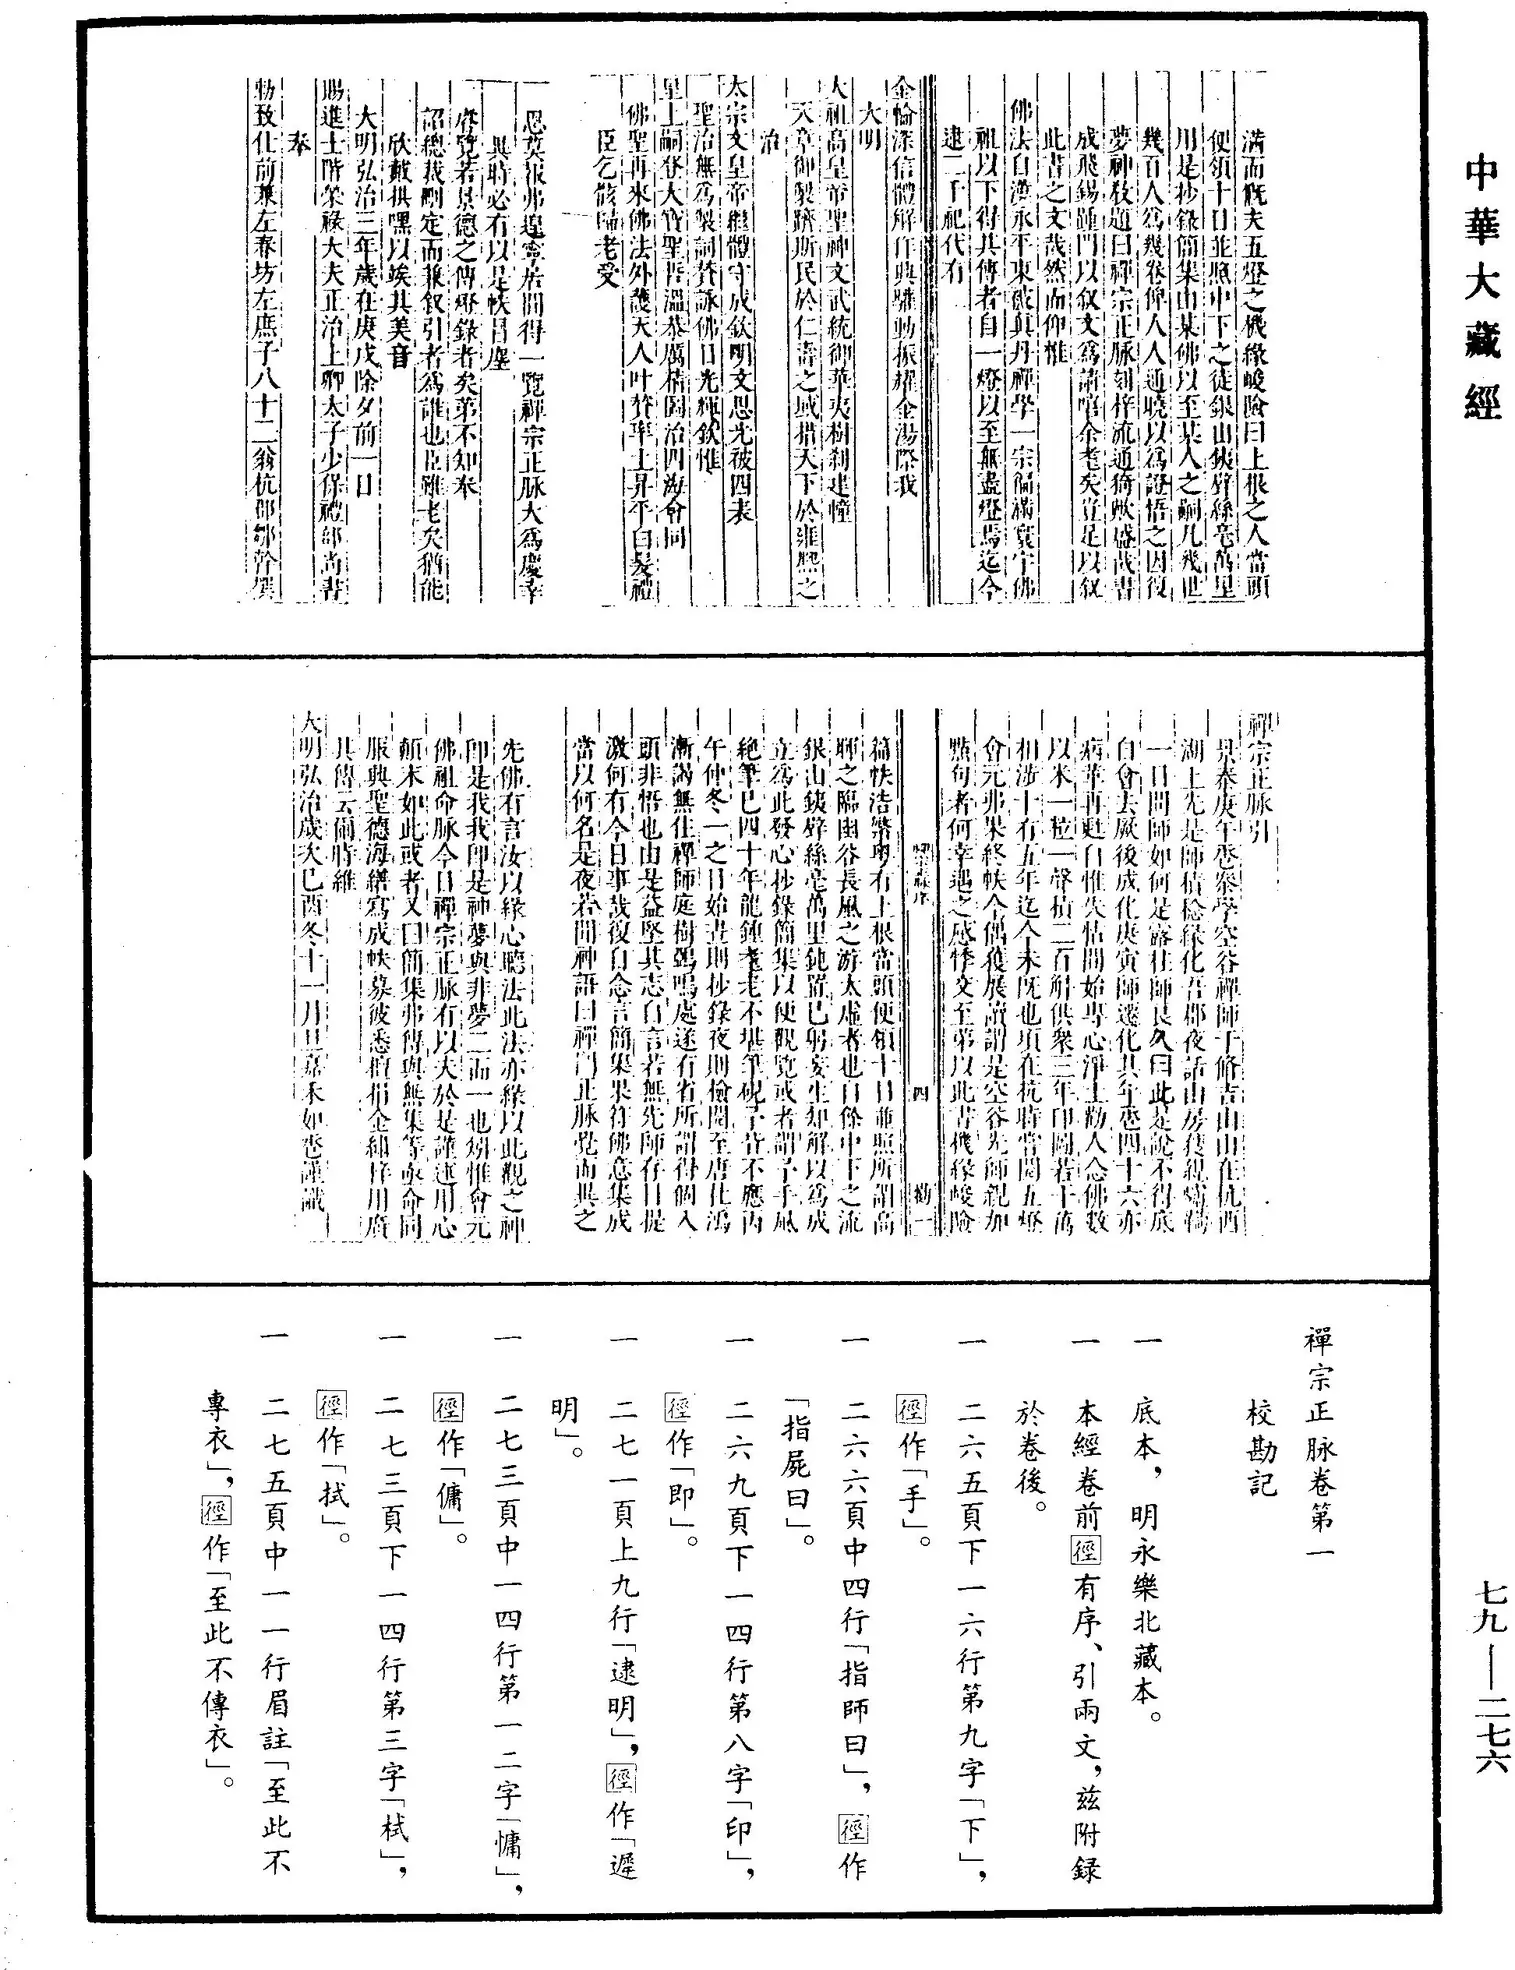 中華大藏經
滿而慨夫五燈之機緣峻險曰上根之人當頭
便領十日並照中下之徒銀山鐵壁絲毫萬里
用是抄錄簡集由某佛以至某人之嗣凡幾世
幾百人爲幾卷俾人人通曉以爲證悟之因復
夢神教題曰禪宗正脉刻梓流通猗歟盛哉書
成飛錫踵門以叙文爲請噫余耄矣豈足以叙
此書之文哉然而仰惟
佛法自漢永平東被真丹禪學一宗徧滿寰宇佛
祖以下得其傳者自一燈以至無盡燈焉迄今
逮二千祀代有
金輪深信體解作興驅動振耀金湯際我
大明
太祖高皇帝聖神文武統御華夷樹刹建幢
天章御製躋斯民於仁壽之域措天下於雍熙之
治
太宗文皇帝繼體守成欽明文思光被四表
聖治無爲製詞贊詠佛日光輝欽惟
皇上嗣登大寶聖哲溫恭厲精圖治四海會同
佛聖再來佛法外護天人叶贊率土昇平白髮禮
臣乞骸歸老受
恩莫報弗遑寧居間得一覽禪宗正脉大爲慶幸
異時必有以是帙冒塵
睿覽若景德之傳燈錄者矣第不知奉
詔總裁刪定而兼叙引者爲誰也臣雖老矣猶能
欣戴拱嘿以竢其美音
大明弘治三年歲在庚戌除夕前一日
賜進士階榮祿大夫正治上卿太子少保禮部尚書
奉
勑致仕前兼左春坊左庶子八十二翁杭郡鄒幹撰
禪宗正脉引
景泰庚午卺參學空谷禪師于脩吉山山在杭西
湖上先是師積檢緣化吾郡夜話山房獲親
一日問師如何是露柱師良久曰此是說不得底
自會去厥後成化庚寅師遷化其年卺四十六亦
病華再甦自惟失怙問始專心淨土勸人念佛數
以米一粒一聲積二百斛供衆三年印圖若十萬
相涉十有五年迄今未既也頃在杭時嘗閱五燈
會元弗果終帙今偶獲展讀謂是空谷先師親加
點句者何幸遇之感悸交至第以此書機緣峻險
四 勸一
篇帙浩繁粤有上根當頭便領十日並照所謂高
暉之臨幽谷長風之游太虛者也自餘中下之流
銀山鐵壁絲毫萬里鈍置巳躬妄生却解以爲成
立爲此發心抄錄簡集以便觀覽或者謂予手風
絶筆巳四十年龍鍾耄老不堪筆硯予皆不應丙
午仲冬一之日始晝則抄錄夜則檢閱至唐化鴻
漸謁無住禪師庭樹鵶鳴處遂有省所謂得個入
頭非悟也由是益堅其志自言若無先師存日提
激何有今日事哉復自念言簡集果符佛意集成
當以何名是夜若聞神語曰禪門正脉覺而異之
先佛有言汝以緣心聽法此法亦緣以此觀之神
即是我我即是神夢與非夢二而一也矧惟會元
佛祖命脉今日禪宗正脉有以大於是謹述用心
顛末如此或者又曰簡集弗傳與無集等亟命同
服典聖德海繕寫成帙募彼悉檀捐金鋟梓用廣
其傳云爾時維
大明弘治歲次巳酉冬十一月旦嘉禾如卺謹識
禪宗正脉卷第一
校勘記
一 底本，明永樂北藏本。
一 本經卷前徑有序、引兩文，茲附錄
於卷後。
一 二六五頁下一六行第九字「下」，
徑作「手」。
一 二六六頁中四行「指師曰」，徑作
「指屍曰」。
一 二六九頁下一四行第八字「印」，
徑作「即」。
一 二七一頁上九行「逮明」，徑作「遲
明」。
一 二七三頁中一四行第一二字「慵」，
徑作「傭」。
一 二七三頁下一四行第三字「栻」，
徑作「拭」。
一 二七五頁中一一行眉註「至此不
專衣」，徑作「至此不傳衣」。
七九—二七六